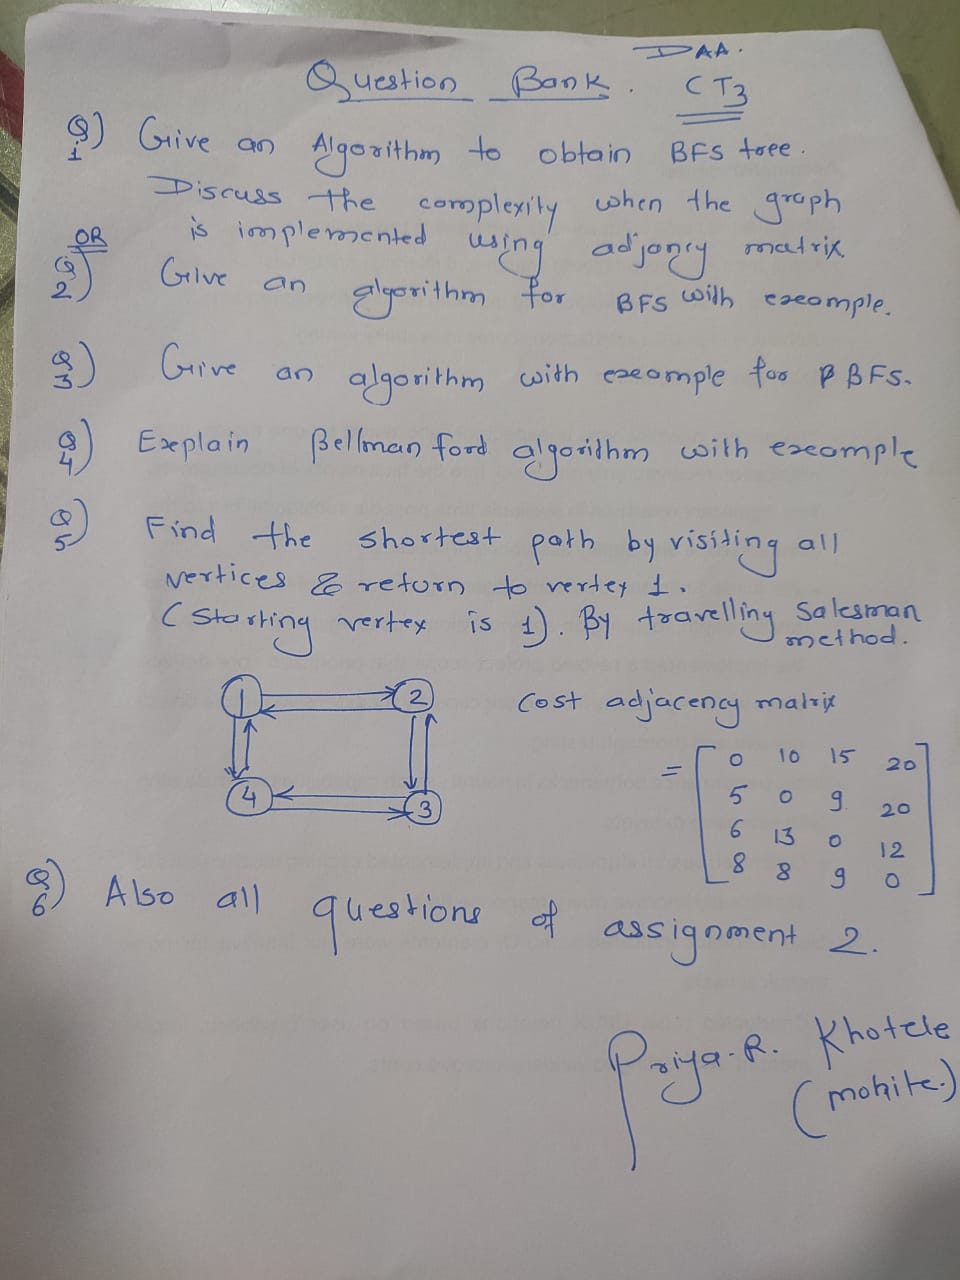 DAA.
Question Bank. CT3
Q1) Give an Algorithm to obtain BFS tree.
Discuss the complexity when the graph
is implemented using adjancy matrix
OR
Q2) Give an algorithm for BFS with example.
Q3) Give an algorithm with example for BFS.
Q4) Explain Bellman ford algorithm with example
Q5) Find the shortest path by visiting all
vertices & return to vertex 1.
(Starting vertex is 1). By travelling Salesman
method.
1 2
Cost adjacency matrix
4 3
= [ 0 10 15 20
5 0 9 20
6 13 0 12
8 8 9 0 ]
Q6) Also all questions of assignment 2.
Priya.R. Khotele
(mohite.)